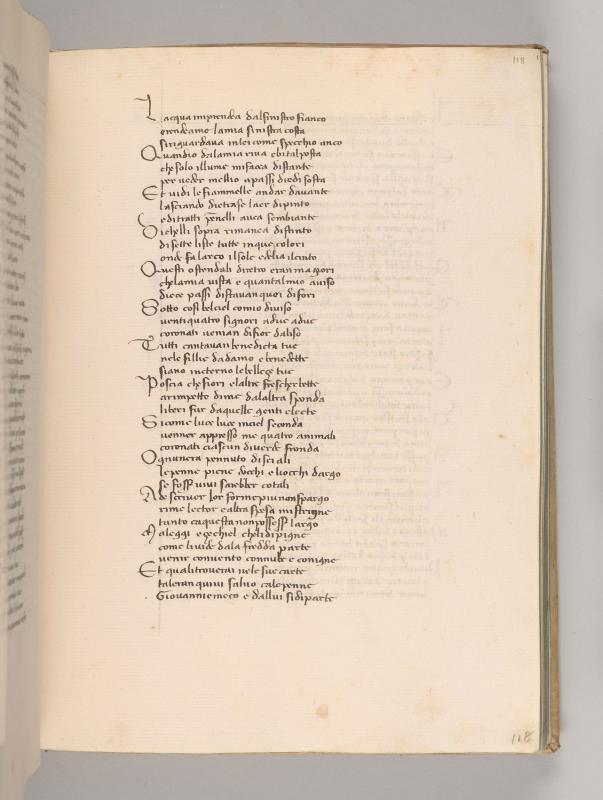 118
L acqua imprendea dal sinistro fianco
erendeame lamia sinistra costa
siriguardava inlei come specchio anco
Quandio dalamia riva ebital posta
che solo illume mifacea distante
per veder meglio apassi diedi sosta
Et vidi le fiammelle andar davante
lasciando dietrase laer dipinto
editratti penelli avea sembiante
Sichelli sopra rimanea distinto
disette liste tutte inque colori
onde fa larco ilsole edelia ilcinto
Questi ostendali dietro eran magiori
chelamia vista e quantalmio aviso
diece passi distavan quei difori
Sotto cosi belciel comio diviso
ventiquatro signori adue adue
coronati venian difior daliso
Tutti cantavan benedicta tue
nele fillie dadamo e benedette
siano inetterno lebelleçe tue
Poscia chefiori elaltre fresche erbette
arimpetto dime dalaltra sponda
liberi fur daquelle genti electe
Si come luce luce inciel seconda
venner appresso me quatro animali
coronati ciascun diverde fronda
Ognunera pennuto disei ali
le penne piene docchi e liocchi dargo
se fosser vivi sarebber cotali
A descriver lor forme piu non spargo
rime lector ealtra spesa mistrigne
tanto caquesta non posso esser largo
Ma leggi eçechiel cheli dipigne
come livide dala fredda parte
venir convento connube e conigne
Et quali troverai nele sue carte
tali eran quivi salvo cale penne
Giovanni e meco e dallui sidiparte
118